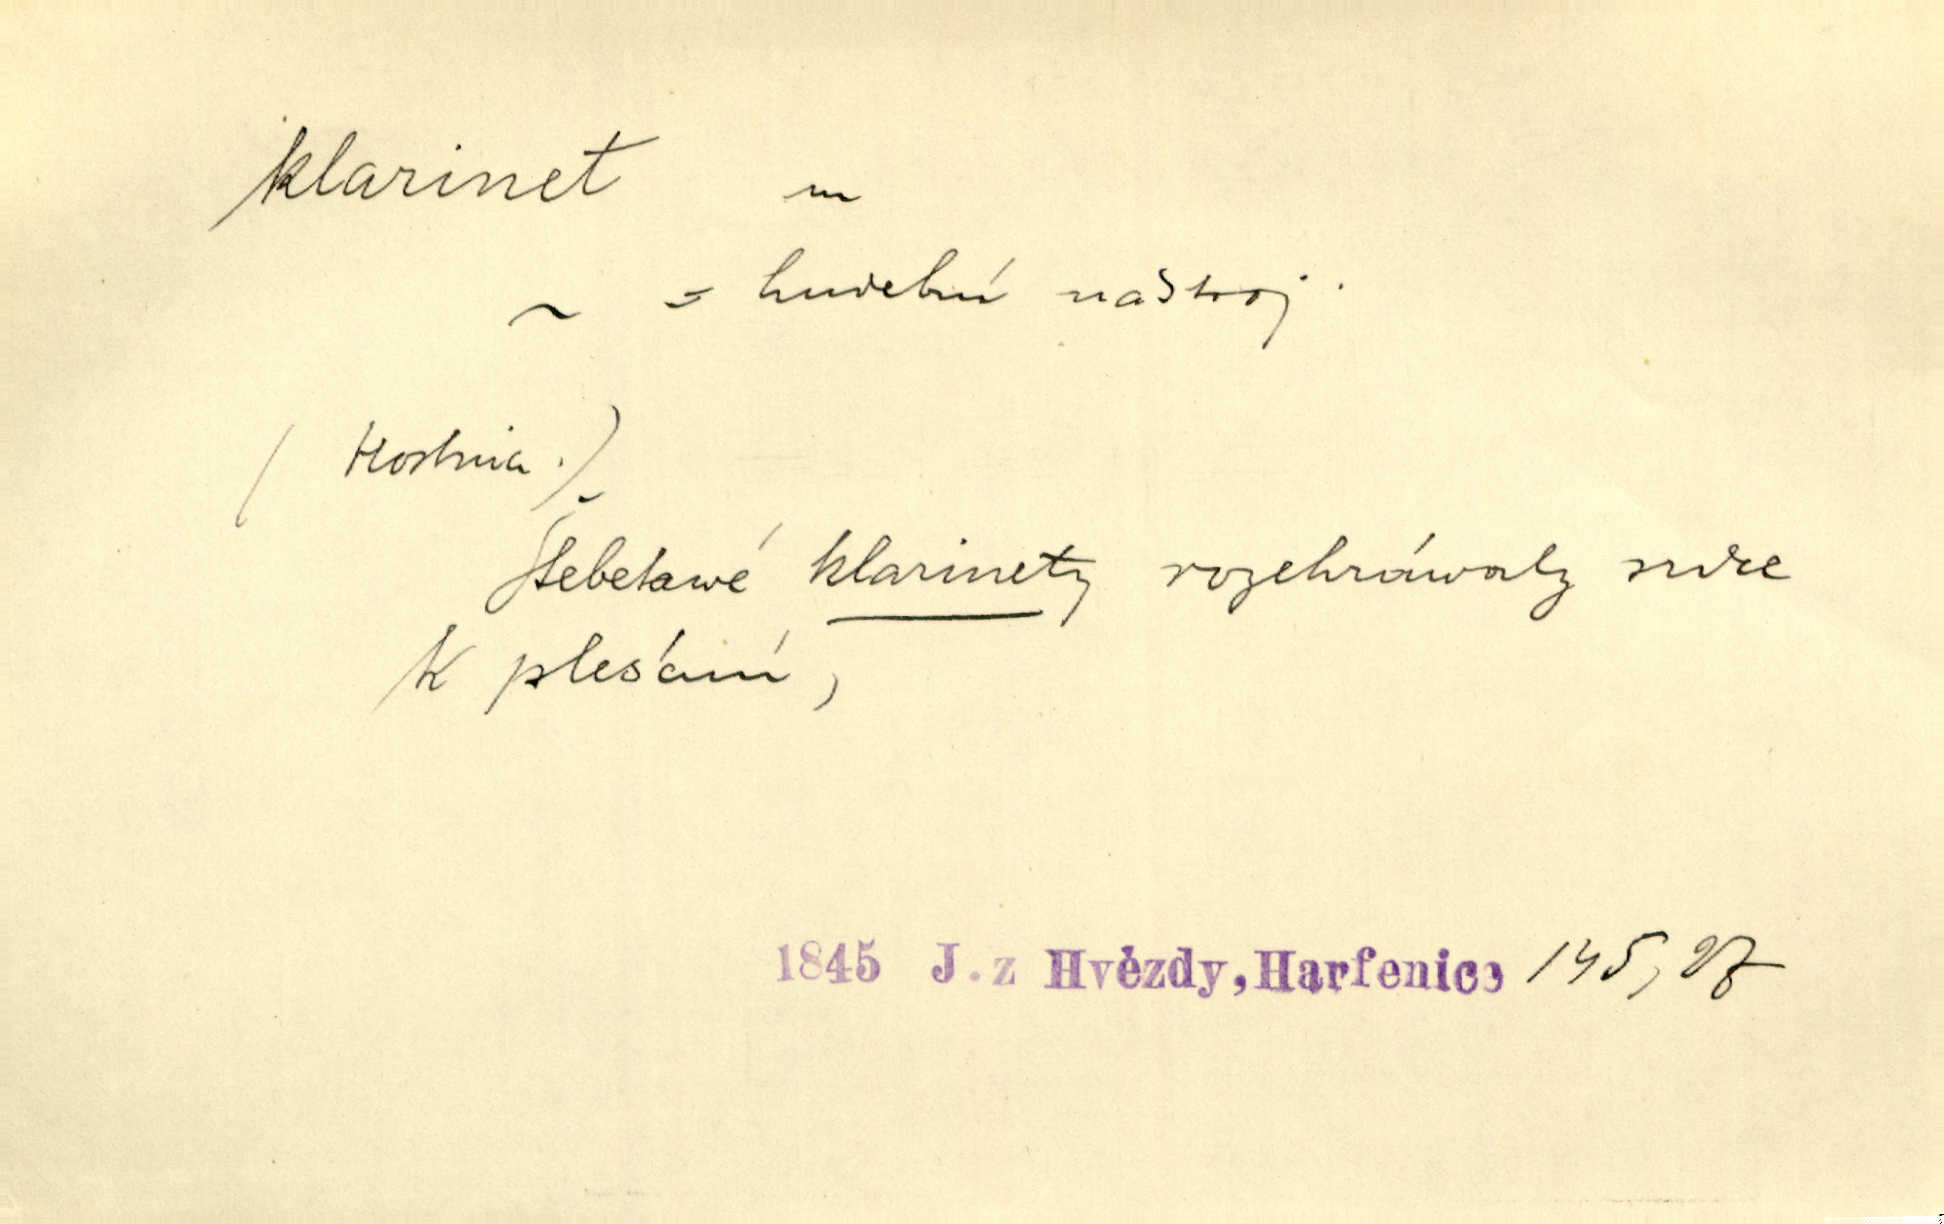 klarinet m
~ = hudební nástroj.
( Hostina.)
Štebetawé klarinety rozehráwaly srdce
K plesání,
1845 J. z Hvězdy, Harfenice 145, 27